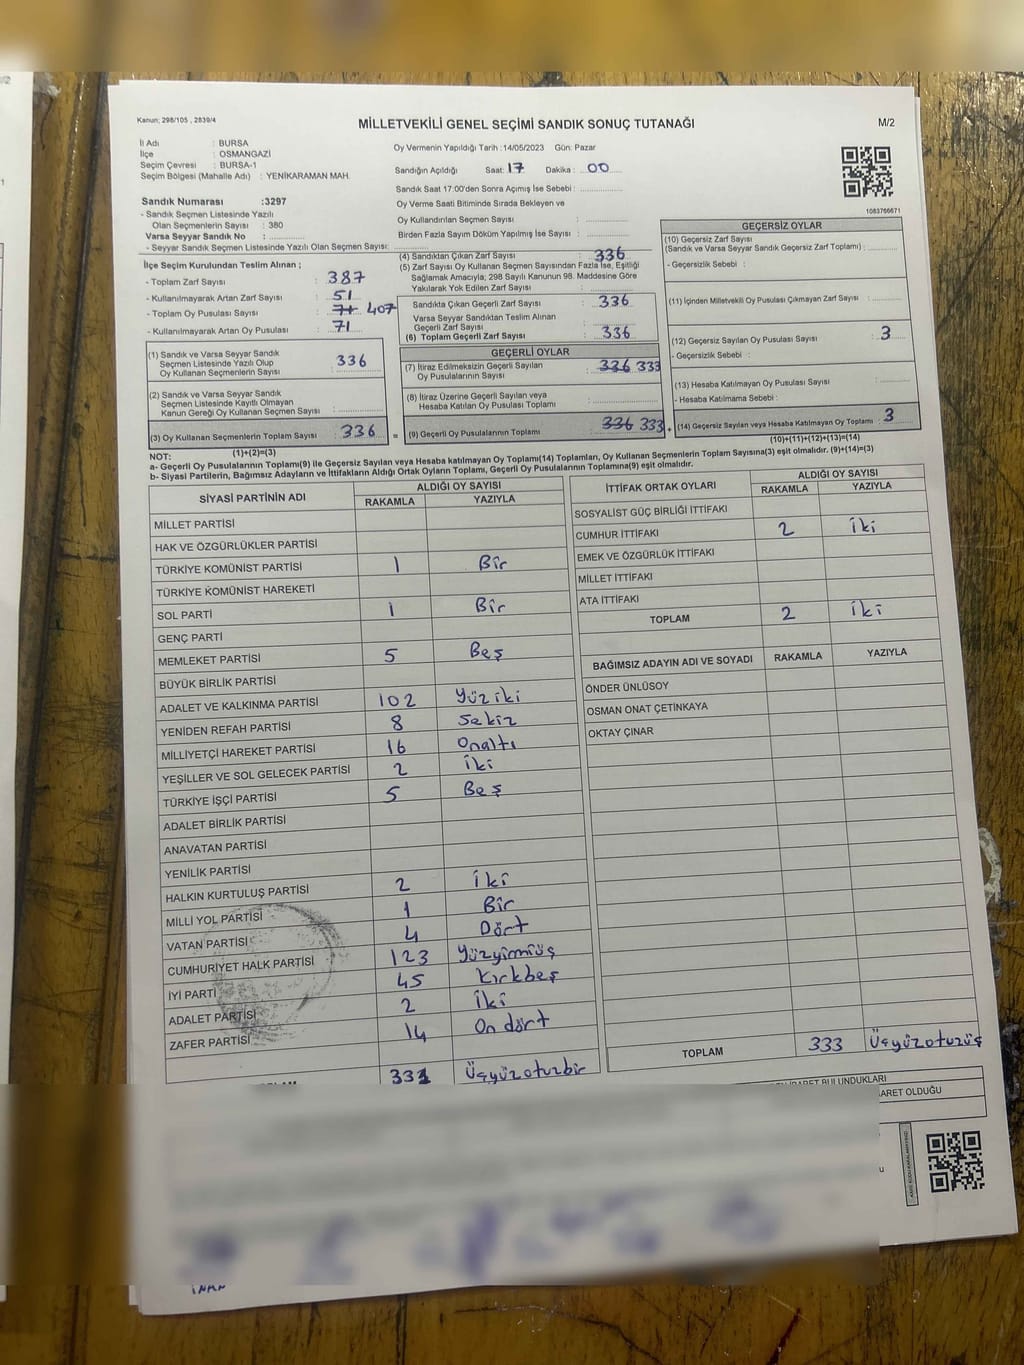 Kanun; 298/105 , 2839/4
MİLLETVEKİLİ GENEL SEÇİMİ SANDIK SONUÇ TUTANAĞI
M/2
İl Adı : BURSA
İlçe : OSMANGAZİ
Seçim Çevresi : BURSA-1
Seçim Bölgesi (Mahalle Adı) : YENİKARAMAN MAH.
Oy Vermenin Yapıldığı Tarih :14/05/2023 Gün: Pazar
Sandığın Açıldığı Saat: 17 Dakika : 00
Sandık Saat 17:00'den Sonra Açımış İse Sebebi :
Oy Verme Saati Bitiminde Sırada Bekleyen ve
Oy Kullandırılan Seçmen Sayısı :
Birden Fazla Sayım Döküm Yapılmış İse Sayısı :
1083766671
Sandık Numarası :3297
- Sandık Seçmen Listesinde Yazılı
Olan Seçmenlerin Sayısı : 380
Varsa Seyyar Sandık No :
- Seyyar Sandık Seçmen Listesinde Yazılı Olan Seçmen Sayısı:
İlçe Seçim Kurulundan Teslim Alınan ;
- Toplam Zarf Sayısı : 387
- Kullanılmayarak Artan Zarf Sayısı : 51
- Toplam Oy Pusulası Sayısı : 71 407
- Kullanılmayarak Artan Oy Pusulası : 71
(1) Sandık ve Varsa Seyyar Sandık
Seçmen Listesinde Yazılı Olup
Oy Kullanan Seçmenlerin Sayısı : 336
(2) Sandık ve Varsa Seyyar Sandık
Seçmen Listesinde Kayıtlı Olmayan
Kanun Gereği Oy Kullanan Seçmen Sayısı :
(3) Oy Kullanan Seçmenlerin Toplam Sayısı : 336
(1)+(2)=(3)
(4) Sandıktan Çıkan Zarf Sayısı : 336
(5) Zarf Sayısı Oy Kullanan Seçmen Sayısından Fazla İse, Eşitliği
Sağlamak Amacıyla; 298 Sayılı Kanunun 98. Maddesine Göre
Yakılarak Yok Edilen Zarf Sayısı :
Sandıkta Çıkan Geçerli Zarf Sayısı : 336
Varsa Seyyar Sandıktan Teslim Alınan
Geçerli Zarf Sayısı :
(6) Toplam Geçerli Zarf Sayısı : 336
GEÇERLİ OYLAR
(7) İtiraz Edilmeksizin Geçerli Sayılan
Oy Pusulalarının Sayısı : 336 333
(8) İtiraz Üzerine Geçerli Sayılan veya
Hesaba Katılan Oy Pusulası Toplamı :
= (9) Geçerli Oy Pusulalarının Toplamı 336 333 +
GEÇERSİZ OYLAR
(10) Geçersiz Zarf Sayısı
(Sandık ve Varsa Seyyar Sandık Geçersiz Zarf Toplamı) :
- Geçersizlik Sebebi :
(11) İçinden Milletvekili Oy Pusulası Çıkmayan Zarf Sayısı :
(12) Geçersiz Sayılan Oy Pusulası Sayısı : 3
- Geçersizlik Sebebi :
(13) Hesaba Katılmayan Oy Pusulası Sayısı :
- Hesaba Katılmama Sebebi :
(14) Geçersiz Sayılan veya Hesaba Katılmayan Oy Toplamı : 3
(10)+(11)+(12)+(13)=(14)
NOT:
a- Geçerli Oy Pusulalarının Toplamı(9) ile Geçersiz Sayılan veya Hesaba katılmayan Oy Toplamı(14) Toplamları, Oy Kullanan Seçmenlerin Toplam Sayısına(3) eşit olmalıdır. (9)+(14)=(3)
b- Siyasi Partilerin, Bağımsız Adayların ve İttifakların Aldığı Ortak Oyların Toplamı, Geçerli Oy Pusulalarının Toplamına(9) eşit olmalıdır.
SİYASİ PARTİNİN ADI ALDIĞI OY SAYISI
RAKAMLA YAZIYLA
MİLLET PARTİSİ
HAK VE ÖZGÜRLÜKLER PARTİSİ
TÜRKİYE KOMÜNİST PARTİSİ 1 Bir
TÜRKİYE KOMÜNİST HAREKETİ
SOL PARTİ 1 Bir
GENÇ PARTİ
MEMLEKET PARTİSİ 5 Beş
BÜYÜK BİRLİK PARTİSİ
ADALET VE KALKINMA PARTİSİ 102 Yüz iki
YENİDEN REFAH PARTİSİ 8 Sekiz
MİLLİYETÇİ HAREKET PARTİSİ 16 Onaltı
YEŞİLLER VE SOL GELECEK PARTİSİ 2 İki
TÜRKİYE İŞÇİ PARTİSİ 5 Beş
ADALET BİRLİK PARTİSİ
ANAVATAN PARTİSİ
YENİLİK PARTİSİ
HALKIN KURTULUŞ PARTİSİ 2 İki
MİLLİ YOL PARTİSİ 1 Bir
VATAN PARTİSİ 4 Dört
CUMHURİYET HALK PARTİSİ 123 Yüzyirmiüç
İYİ PARTİ 45 Kırkbeş
ADALET PARTİSİ 2 İki
ZAFER PARTİSİ 14 On dört
331 Üçyüzotuzbir
İTTİFAK ORTAK OYLARI ALDIĞI OY SAYISI
RAKAMLA YAZIYLA
SOSYALİST GÜÇ BİRLİĞİ İTTİFAKI
CUMHUR İTTİFAKI 2 İki
EMEK VE ÖZGÜRLÜK İTTİFAKI
MİLLET İTTİFAKI
ATA İTTİFAKI
TOPLAM 2 İki
BAĞIMSIZ ADAYIN ADI VE SOYADI RAKAMLA YAZIYLA
ÖNDER ÜNLÜSOY
OSMAN ONAT ÇETİNKAYA
OKTAY ÇINAR
TOPLAM 333 Üçyüzotuzüç
BULUNDUKLARI
OLDUĞU
İNAN